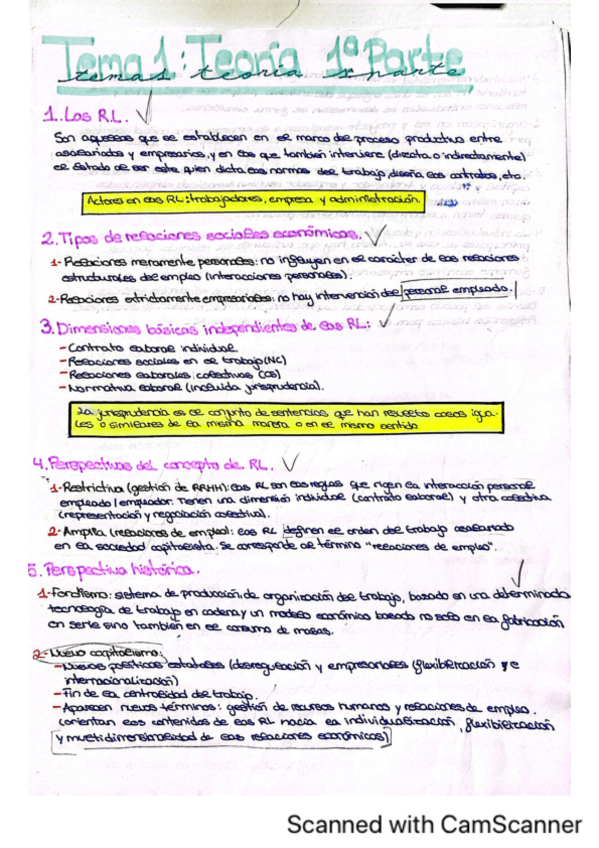 Tema 1: Teoría 1ª Parte
temas teoría 1ª parte
1. Las R.L.
Son aquellas que se establecen en el marco del proceso productivo entre
asalariados y empresarios, y en las que también interviene (directa o indirectamente)
el Estado al ser este quien dicta las normas del trabajo, diseña los contratos, etc.
Actores en las RL: trabajadores, empresa y administración.
2. Tipos de relaciones sociales económicas.
1- Relaciones meramente personales: no influyen en el carácter de las relaciones
estructurales del empleo (interacciones personales).
2- Relaciones estrictamente empresariales: no hay intervención del personal empleado.
3. Dimensiones básicas independientes de las RL:
- Contrato laboral individual.
- Relaciones sociales en el trabajo (NC)
- Relaciones laborales colectivas (CB)
- Normativa laboral (incluida jurisprudencia).
La jurisprudencia es el conjunto de sentencias que han resuelto casos igua-
les o similares de la misma manera o en el mismo sentido.
4. Perspectivas del concepto de RL.
1- Restrictiva (gestión de RRHH): las RL son las reglas que rigen la interacción personal
empleado/empleador. Tienen una dimensión individual (contrato laboral) y otra colectiva
(representación y negociación colectiva).
2- Amplia (relaciones de empleo): las RL definen el orden del trabajo asalariado
en la sociedad capitalista. Se corresponde al término "relaciones de empleo".
5. Perspectiva histórica.
1- Fordismo: sistema de producción, de organización del trabajo, basado en una determinada
tecnología de trabajo en cadena y un modelo económico basado no solo en la fabricación
en serie sino también en el consumo de masas.
2- Nuevo capitalismo:
- Nuevas políticas estatales (desregulación y empresariales (flexibilización y e
internacionalización)
- Fin de la centralidad del trabajo.
- Aparecen nuevos términos: gestión de recursos humanos y relaciones de empleo.
(orientan los contenidos de las RL hacia la individualización, flexibilización
y multidimensionalidad de las relaciones económicas)
Scanned with CamScanner